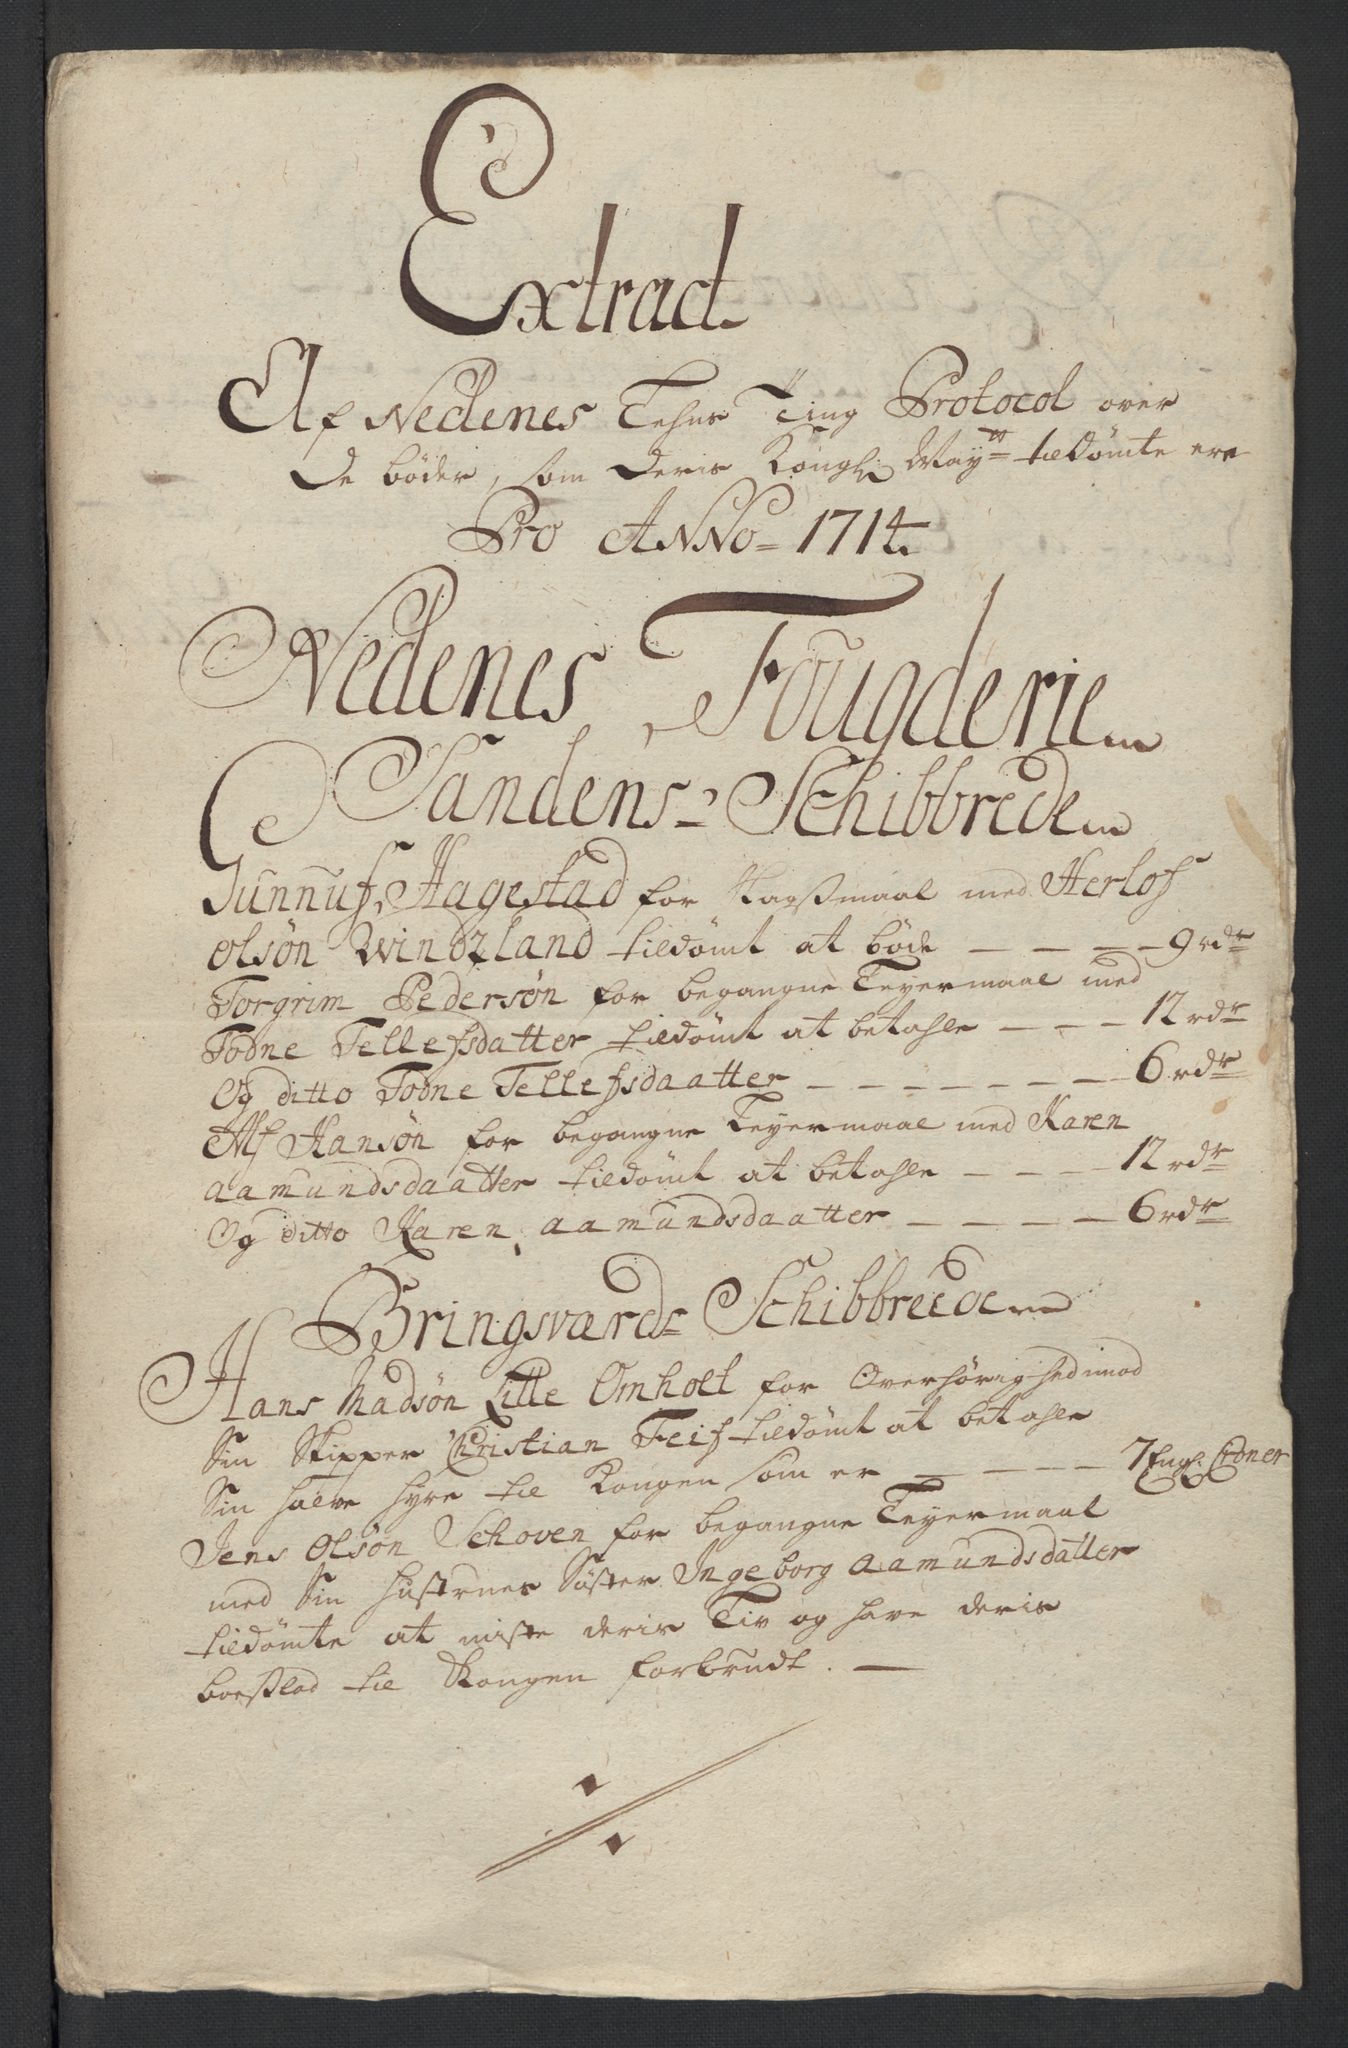 Extract
Af Nedenes Lehns Ting Protocol over
De bøder, som Deris Kongl: May:tt tildømte ere
Pro ANNO = 1714.
Nedenes Fougderie
Sandens = Schibbrede
Gunnuf Hagestad for Slagsmaal med Herlof
olsøn Windzland tildømt at bøde — — — — 9 rdr
Torgrim Pedersøn for begangne Leyermaal med
Todne Tellefsdatter tildømt at betahle — — — 12 rdr
Og ditto Todne Tellefsdaatter — — — — — — — 6 rdr
Alf Hansøn for begangne Leyermaal med Karen
aamundsdaatter tildømt at betahle — — — — 12 rdr
Og ditto Karen aamundsdaatter — — — — 6 rdr
Bringsværds Schibbreede
Hans Madsøn Lille Omholt for Overhørighed imod
Sin Skipper Christian Feif tildømt at betahle
Sin halve hyre til Kongen som er — — — — — 7 Engl: Croner
Jens Olsøn Schoven for begangne Leyermaal
med Sin hustrues Søster Ingeborg aamundsdatter
tildømte at miste deris Liv og have deris
boeslod til Kongen forbrudt. —